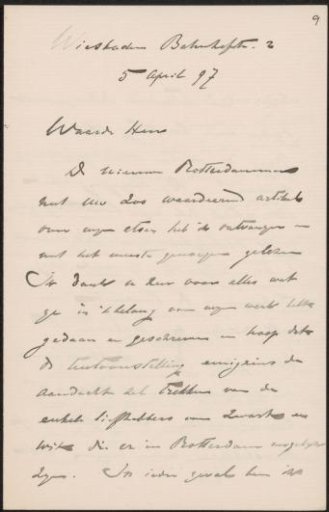 9
Wiesbaden Bahnhofstr. 2
5 April 97
Waarde Heer
De nieuwe Rotterdammers
met uw zoo waardeerend artikel
over mijn etsen heb ik ontvangen en
met het meeste genoegen gelezen
Ik dank u zeer voor alles wat
ge in 't belang van mijn werk hebt
gedaan en geschreven en hoop dat
de tentoonstelling eenigzins de
aandacht zal trekken van de
enkele liefhebbers van Zwart en
Wit die er in Rotterdam mogelijk
zijn. In ieder geval ben ik